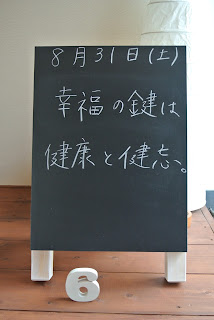 8月31日(土)
幸福の鍵は
健康と健忘。
6